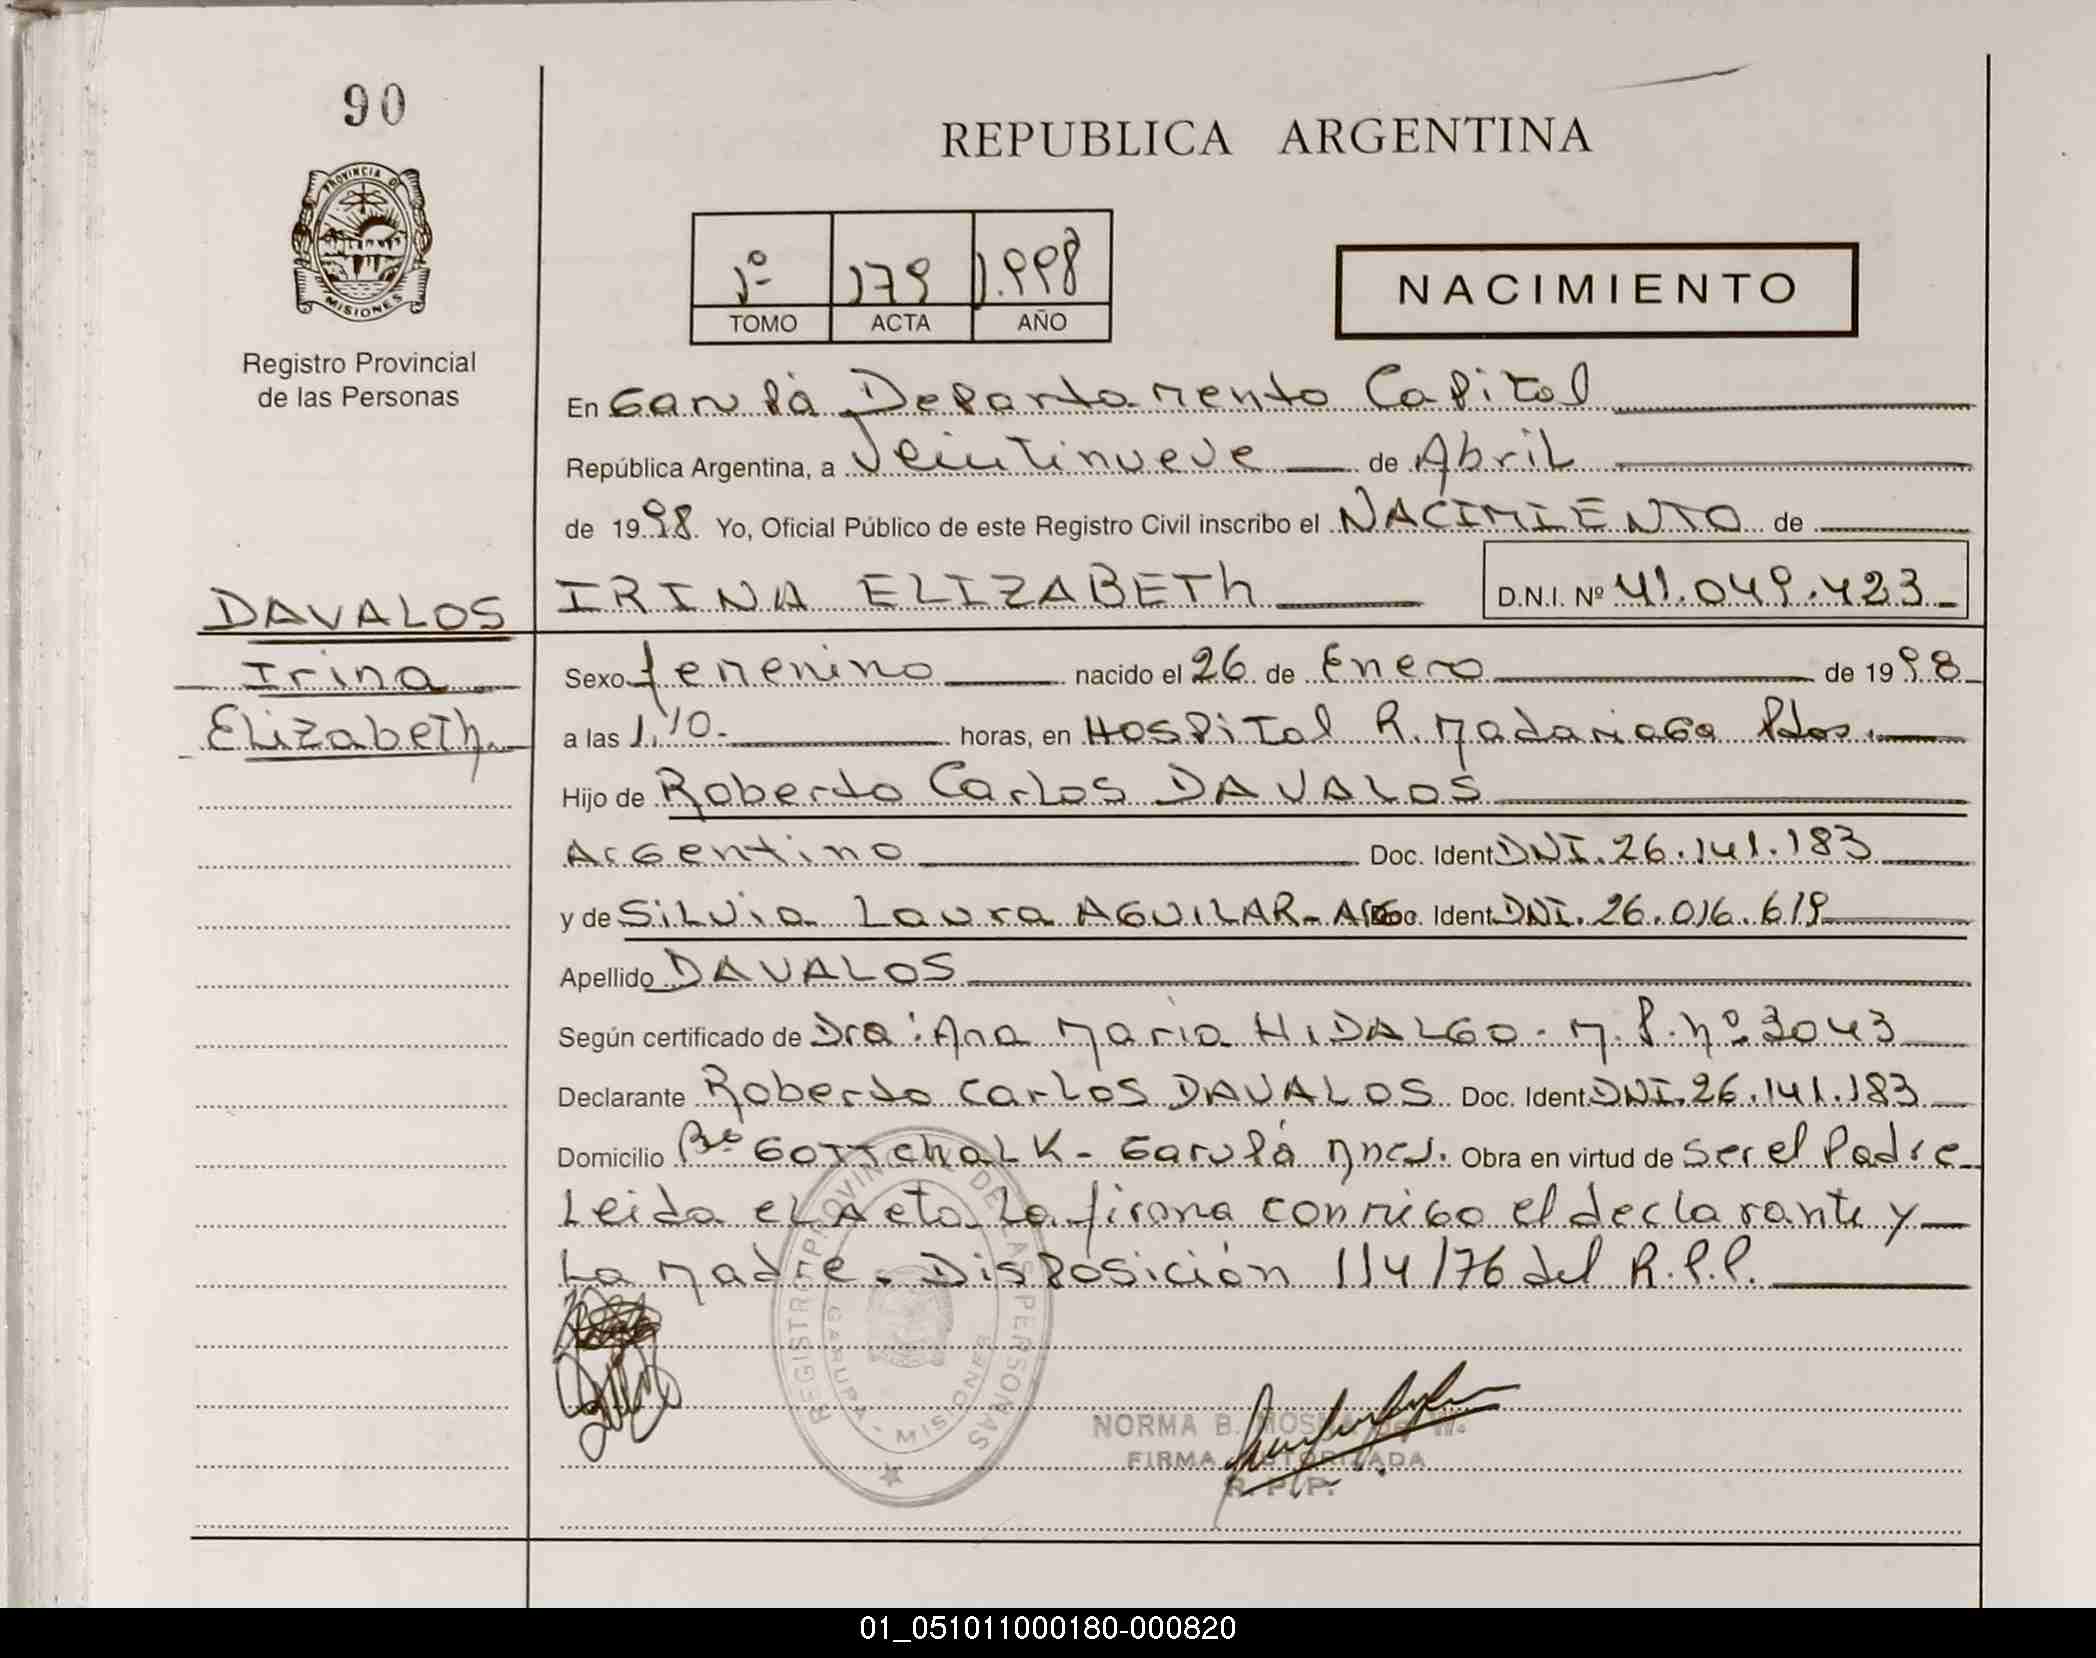 90
PROVINCIA DE
MISIONES
Registro Provincial
de las Personas
REPUBLICA ARGENTINA
1º 179 1.998
TOMO ACTA AÑO
NACIMIENTO
En Garupá Departamento Capital
República Argentina, a Veintinueve de Abril
de 1998. Yo, Oficial Público de este Registro Civil inscribo el NACIMIENTO de
DAVALOS IRINA ELIZABETh D.N.I. Nº 41.049.423
Irina
Elizabeth.
Sexo femenino nacido el 26 de Enero de 1998
a las 1,10. horas, en Hospital R. Madariaga Pdas.
Hijo de Roberto Carlos DAVALOS
Argentino Doc. Ident DNI. 26.141.183
y de Silvia Laura AGUILAR - Arg. Doc. Ident DNI. 26.016.619
Apellido DAVALOS
Según certificado de Dra: Ana Maria HIDALGO - M.P. Nº 3043
Declarante Roberto Carlos DAVALOS Doc. Ident. DNI. 26.141.183
Domicilio Bº GOTTchaLK - Garupá Mnes. Obra en virtud de Ser el Padre
Leida el Acta La firma conmigo el declarante y
La Madre. Disposición 114/76 del R.P.P.
REGISTRO PROVINCIAL DE LAS PERSONAS
GARUPA - MISIONES
NORMA B.
FIRMA AUTORIZADA
R. P. P.
01_051011000180-000820